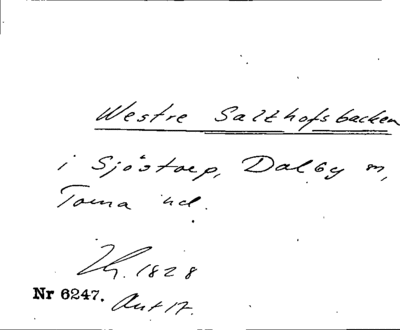 Westre Salthofsbacken
i Sjöstorp, Dalby sn,
Torna hd.
1828
Nr 6247. Akt 17.